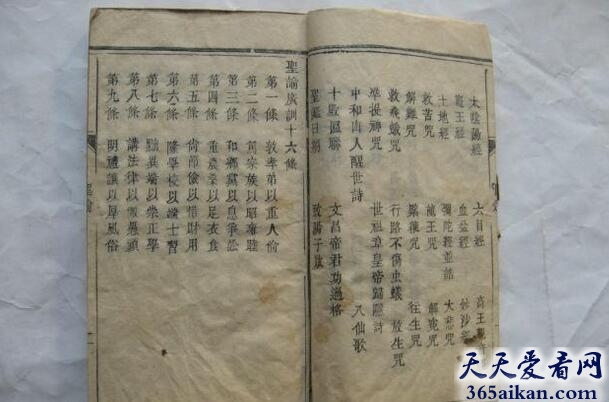 太陰陽經 六目經 高王
竈王經 血盆經 妙沙
土地經 彌陀經並誥 大悲咒
救苦咒 龍王咒 解冤咒
解難咒 往生咒
救飛蛾咒 行路不傷虫蟻 放生咒
準提神咒 世祖章皇帝歸隱詩
中和山人醒世詩 八仙歌
十殿區聯 文昌帝君功過格
聖誕日期
聖諭廣訓十六條
第一條 敦孝弟以重人倫
第二條 篤宗族以昭雍睦
第三條 和鄉黨以息爭訟
第四條 重農桑以足衣食
第五條 尚節儉以惜財用
第六條 隆學校以端士習
第七條 黜異端以崇正學
第八條 講法律以儆愚頑
第九條 明禮讓以厚風俗
天天爱看网
365aikan.com